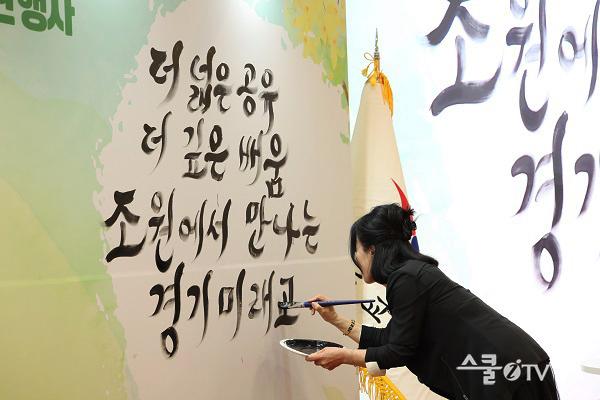 행사
더 넓은 공유
더 깊은 배움
조원에서 만나는
경기미래교
조원에
경기
스쿨iTV